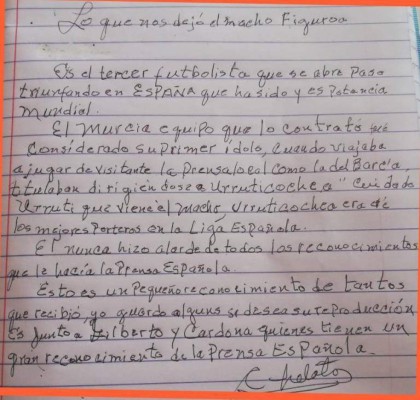 Lo que nos dejó el macho Figuroa
Es el tercer futbolista que se abre paso
triunfando en ESPAÑA que ha sido y es potencia
Mundial.
El Murcia equipo que lo contrató fué
considerado su primer ídolo, cuando viajaba
a jugar de visitante la Prensa local como la del Barcia
titulaban dirigiendose a Urruticochea "cuidado
Urruti que viene el macho, Urruticochea era de
los mejores porteros en la Liga Española.
El nunca hizo alarde de todos las reconocimientos
que le hacía la Prensa Española.
Esto es un pequeño reconocimiento de tantos
que recibió, yo guardo alguns si desea su reproducción
Es junto a Gilberto y Cardona quienes tienen un
gran reconocimiento de la Prensa Española.